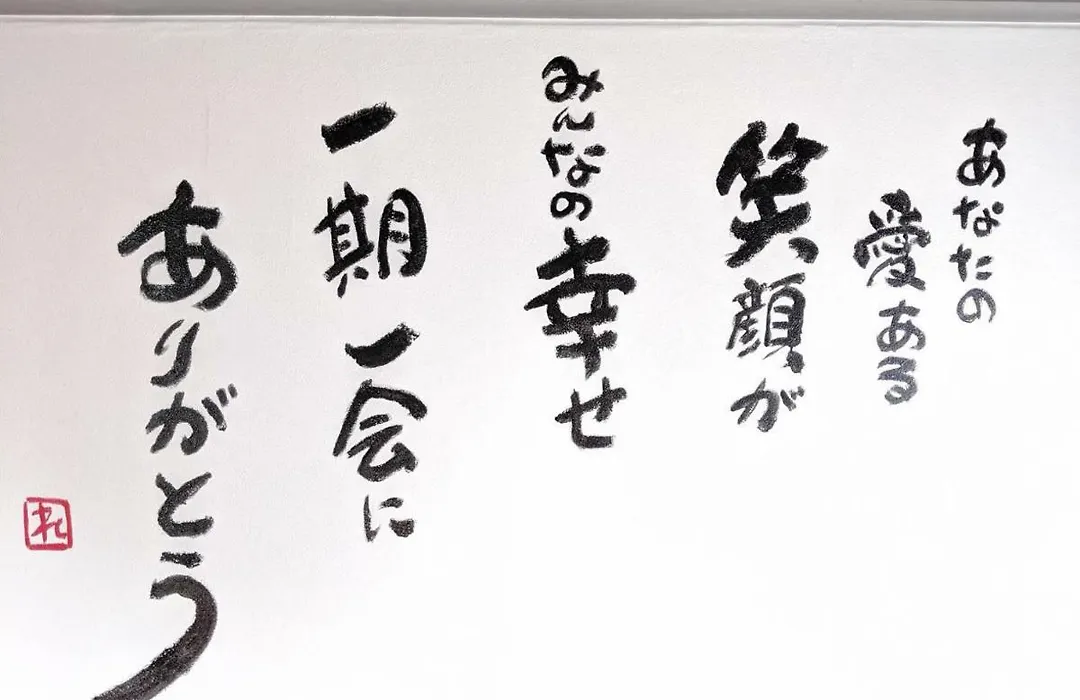 あなたの
愛ある
笑顔が
みんなの幸せ
一期一会に
ありがとう